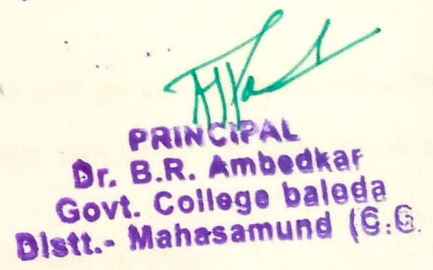 PRINCIPAL
Dr. B.R. Ambedkar
Govt. College baleda
Distt.- Mahasamund (C.G.